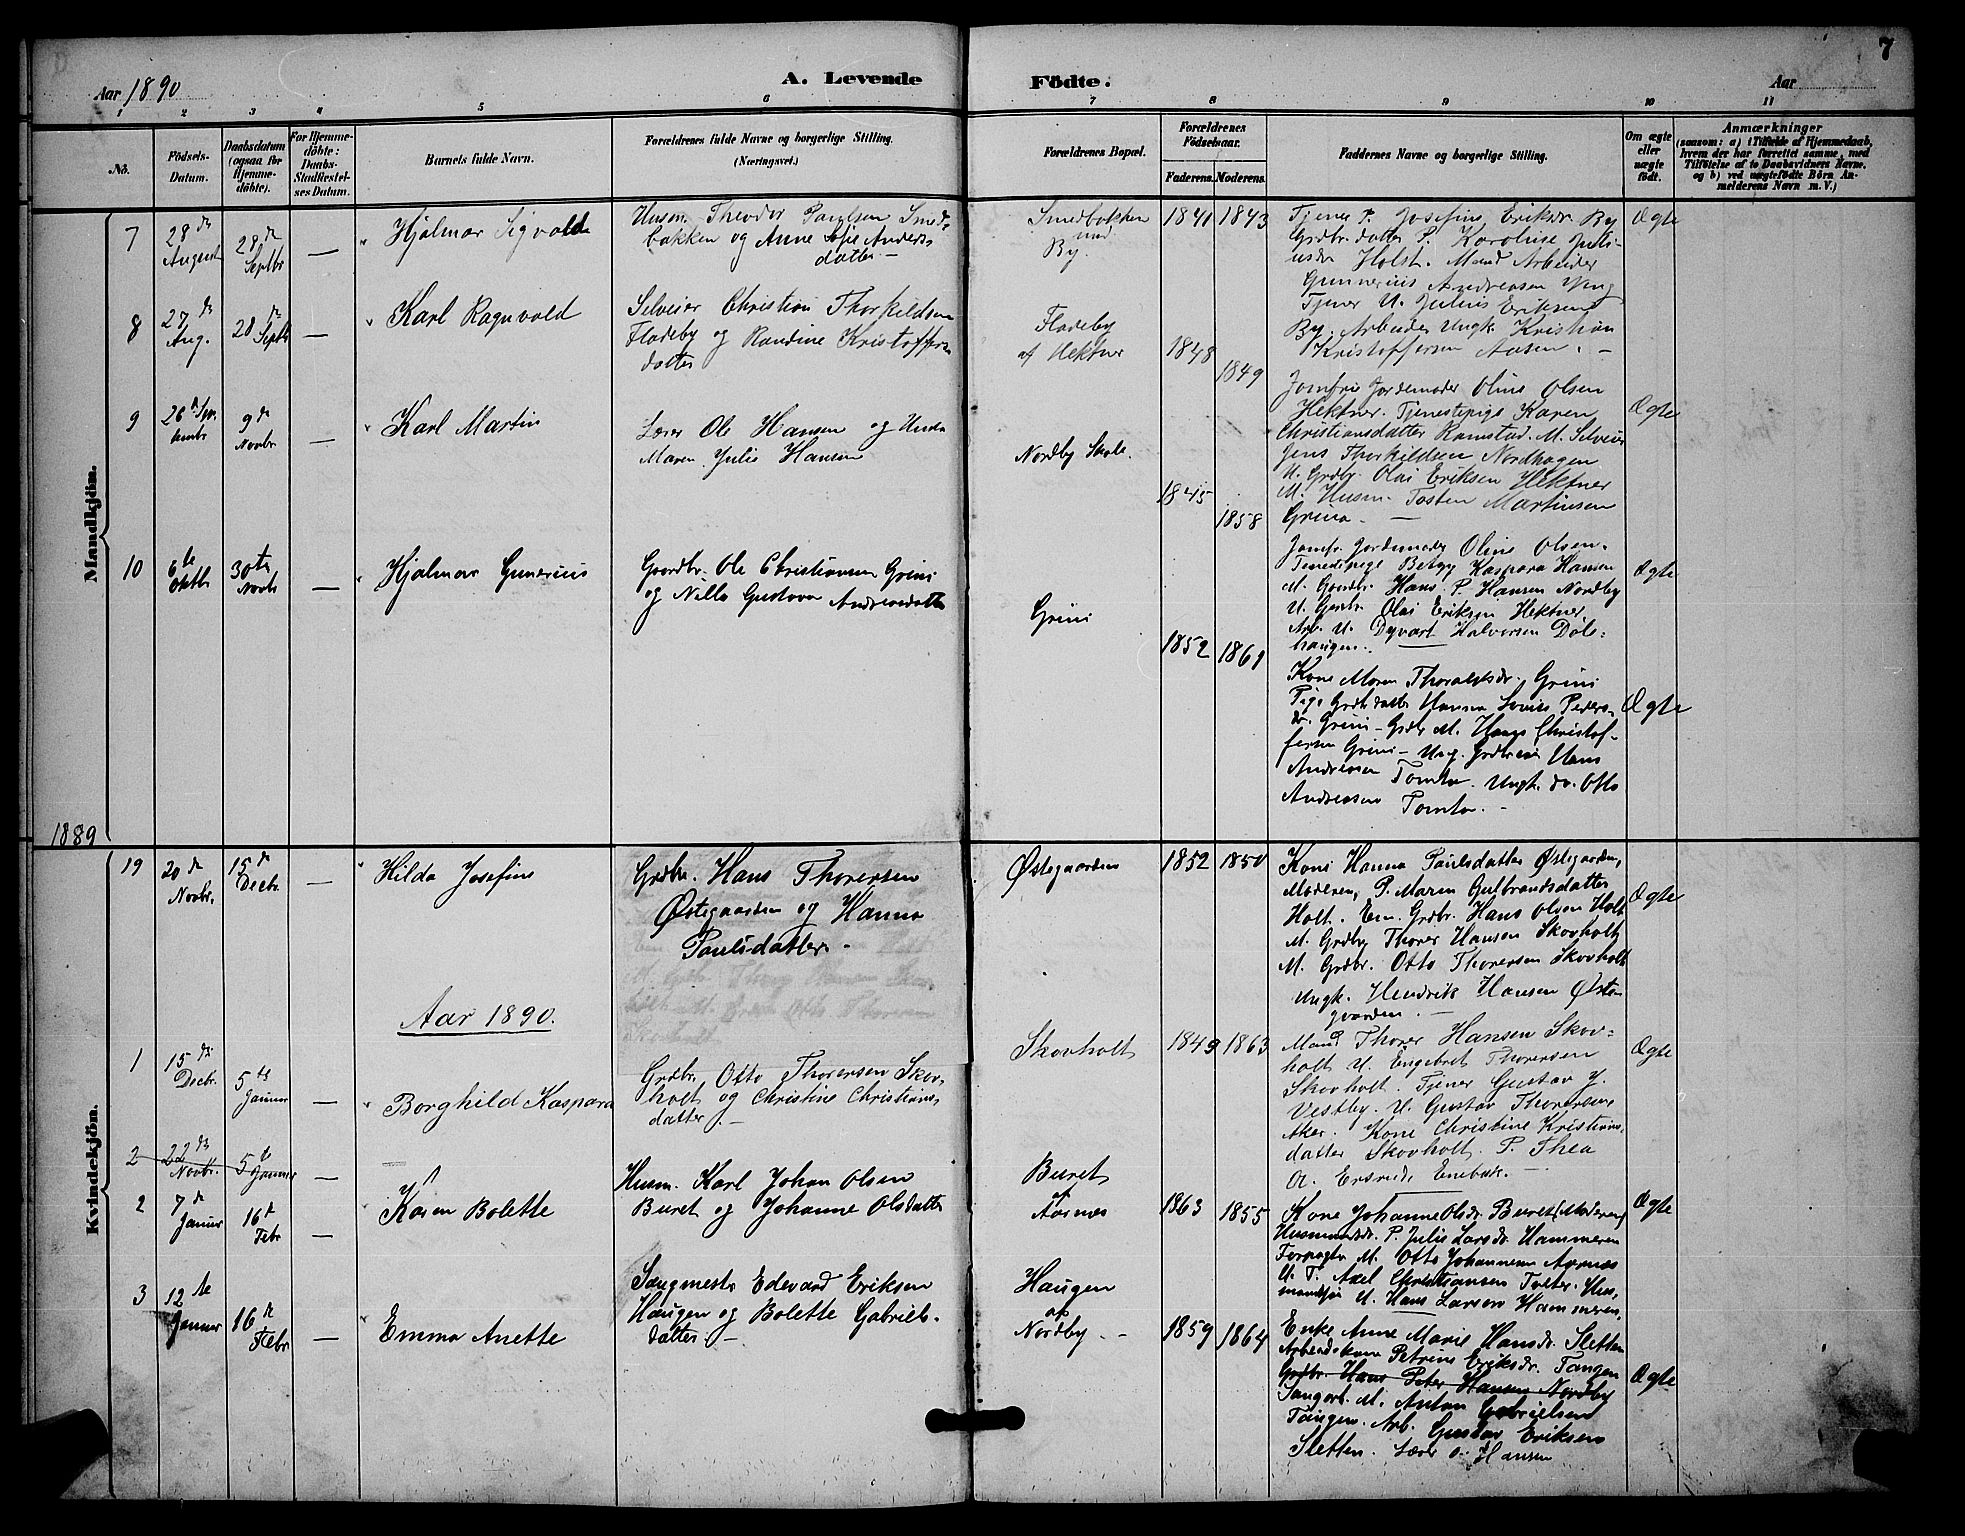 7
Aar 1890
A. Levende Födte.
Aar
1 2 3 4 5 6 7 8 9 10 11
No.
Födsels-
Datum.
Daabsdatum
(ogsaa for
Hjemme-
döbte).
For Hjemme-
döbte:
Daabs-
Stadfæstel-
ses Datum.
Barnets fulde Navn.
Forældrenes fulde Navne og borgerlige Stilling.
(Næringsvei.)
Forældrenes Bopæl.
Forældrenes
Födselsaar.
Faderens. Moderens.
Faddernes Navne og borgerlige Stilling.
Om ægte
eller
uægte
født.
Anmærkninger
(saasom: a) i Tilfælde af Hjemmedaab,
hvem der har forrettet samme, med
Tilföielse af to Daabsvidners Navne,
og b) ved uægtefödte Börn An-
melderens Navn m. V.)
Mandkjön.
7
28de
August
28de
Septbr
—
Hjalmar Sigvald
Husm. Theodor Paulsen Smed-
bakken og Anne Sofie Anders-
datter. —
Smedbakken
By.
1841 1843
Tjenp. Josefine Eriksdr. By
Grdbr.datter P. Karoline
Holst. Mand Arbeider
Gunnerius Andreasen
Tjener U. Julius Eriksen
By. Arbeider Ungk. Kristian
Kristoffersen Aasen. —
Ægte
8
27de
Aug.
28de Septbr
—
Karl Ragnvald
Selveier Christian Thorkildsen
Fladeby og Randine Kristoffers-
datter
Fladeby
af Hektner
1848
1849
Jomfru Jordemoder Oline Olsen
Hektner. Tjenestepige Karen
Christiansdatter Ramstad. M. Selveier
Jens Thorkildsen Nordhagen
U. Grdbr. Olai Eriksen Hektner
M. Husm. Tosten Martinsen
Grina. —
Ægte
9
26de Sep-
tembr
9de
Novbr
—
Karl Martin
Lærer Ole Hansen og
Maren Julie Hansen
Nordby Skole.
1845
1858
Jomfr. Jordemoder Oline Olsen.
Tjenestepige Betzy Kaspara Hansen
M. Gaardbr. Hans P. Hansen Nordby
U. Gaardbr. Olai Eriksen Hektner
Arb. U. Dyvart Halvorsen Døle-
haugen. —
Ægte
10
6te
Oktbr
30te
Novbr
—
Hjalmar Gunerius
Gaardbr. Ole Christiansen Grini
og Nilla Gustava Andreasdatter
Grini
1852 1861
Kone Maren Thoraldsdr. Grini
Pige Grdbr.datter Hanna Lovise Peders-
dr. Grini — Grdbr. M. Hans Christof-
fersen Grini — Ung. Grdbr. Hans
Andreasen Tomta. Ungk. do. Otto
Andreasen Tomta. —
Ægte
1889
Kvindekjön.
19
20de
Novbr.
15de
Decbr.
—
Hilda Josefine
Grdbr. Hans Thorersen
Østegaarden og Hanna
Paulsdatter. —
Østegaarden
1852 1850
Kone Hanna Paulsdatter Østegaarden,
Moderen, P. Maren Gulbrandsdatter
Holt. Em. Grdbr. Hans Olsen Holt
M. Grdbr. Thorer Hansen Skovholt
M. Grdbr. Otto Thorersen Skovholt
Ungk. Hendrik Hansen Øste-
gaarden. —
Ægte
Aar 1890.
1
15de
Decbr.
5te
Januar
—
Borghild Kaspara
Grdbr. Otto Thorersen Skov-
holt og Christine Christians-
datter. —
Skovholt
1849 1863
Mand Thorer Hansen Skov-
holt U. Engebret Thorersen
Skovholt. Tjener Gustav J.
Vestby. U. Gustav Thorersen
Aker. Kone Christine Kristians-
datter Skovholt. P. Thea
O. Ersrud, Enebak. —
Ægte
2 22de Novbr. 5te Januar —
2
7de
Januar
16de
Febr.
—
Karen Bolette
Husm. Karl Johan Olsen
Buret og Johanne Olsdatter
Buret
af
Aarnæs
1863 1855
Kone Johanne Olsdr. Buret (Moderen)
Husmandsdr. P. Julie Larsdr. Hammeren
Forpagter M. Otto Johannesen Aarnæs
U. T. Axel Christiansen Tofter. Hus-
mandssøn U. Hans Larsen Hammeren.
Ægte
3
12te
Januar
16de
Febr.
—
Emma Anette
Saugmester Edevard Eriksen
Haugen og Bolette Gabriels-
datter. —
Haugen
af
Nordby. —
1859 1864
Enke Anne Marie Hansdr. Sletten
Arbeidskone Petrine Eriksdr. Tangen
Grdbr. Hans Peter Hansen Nordby
Saugarb. M. Anton Gabrielsen
Tangen. Arb. Gustav Eriksen
Sletten. Lærer O. Hansen
Ægte